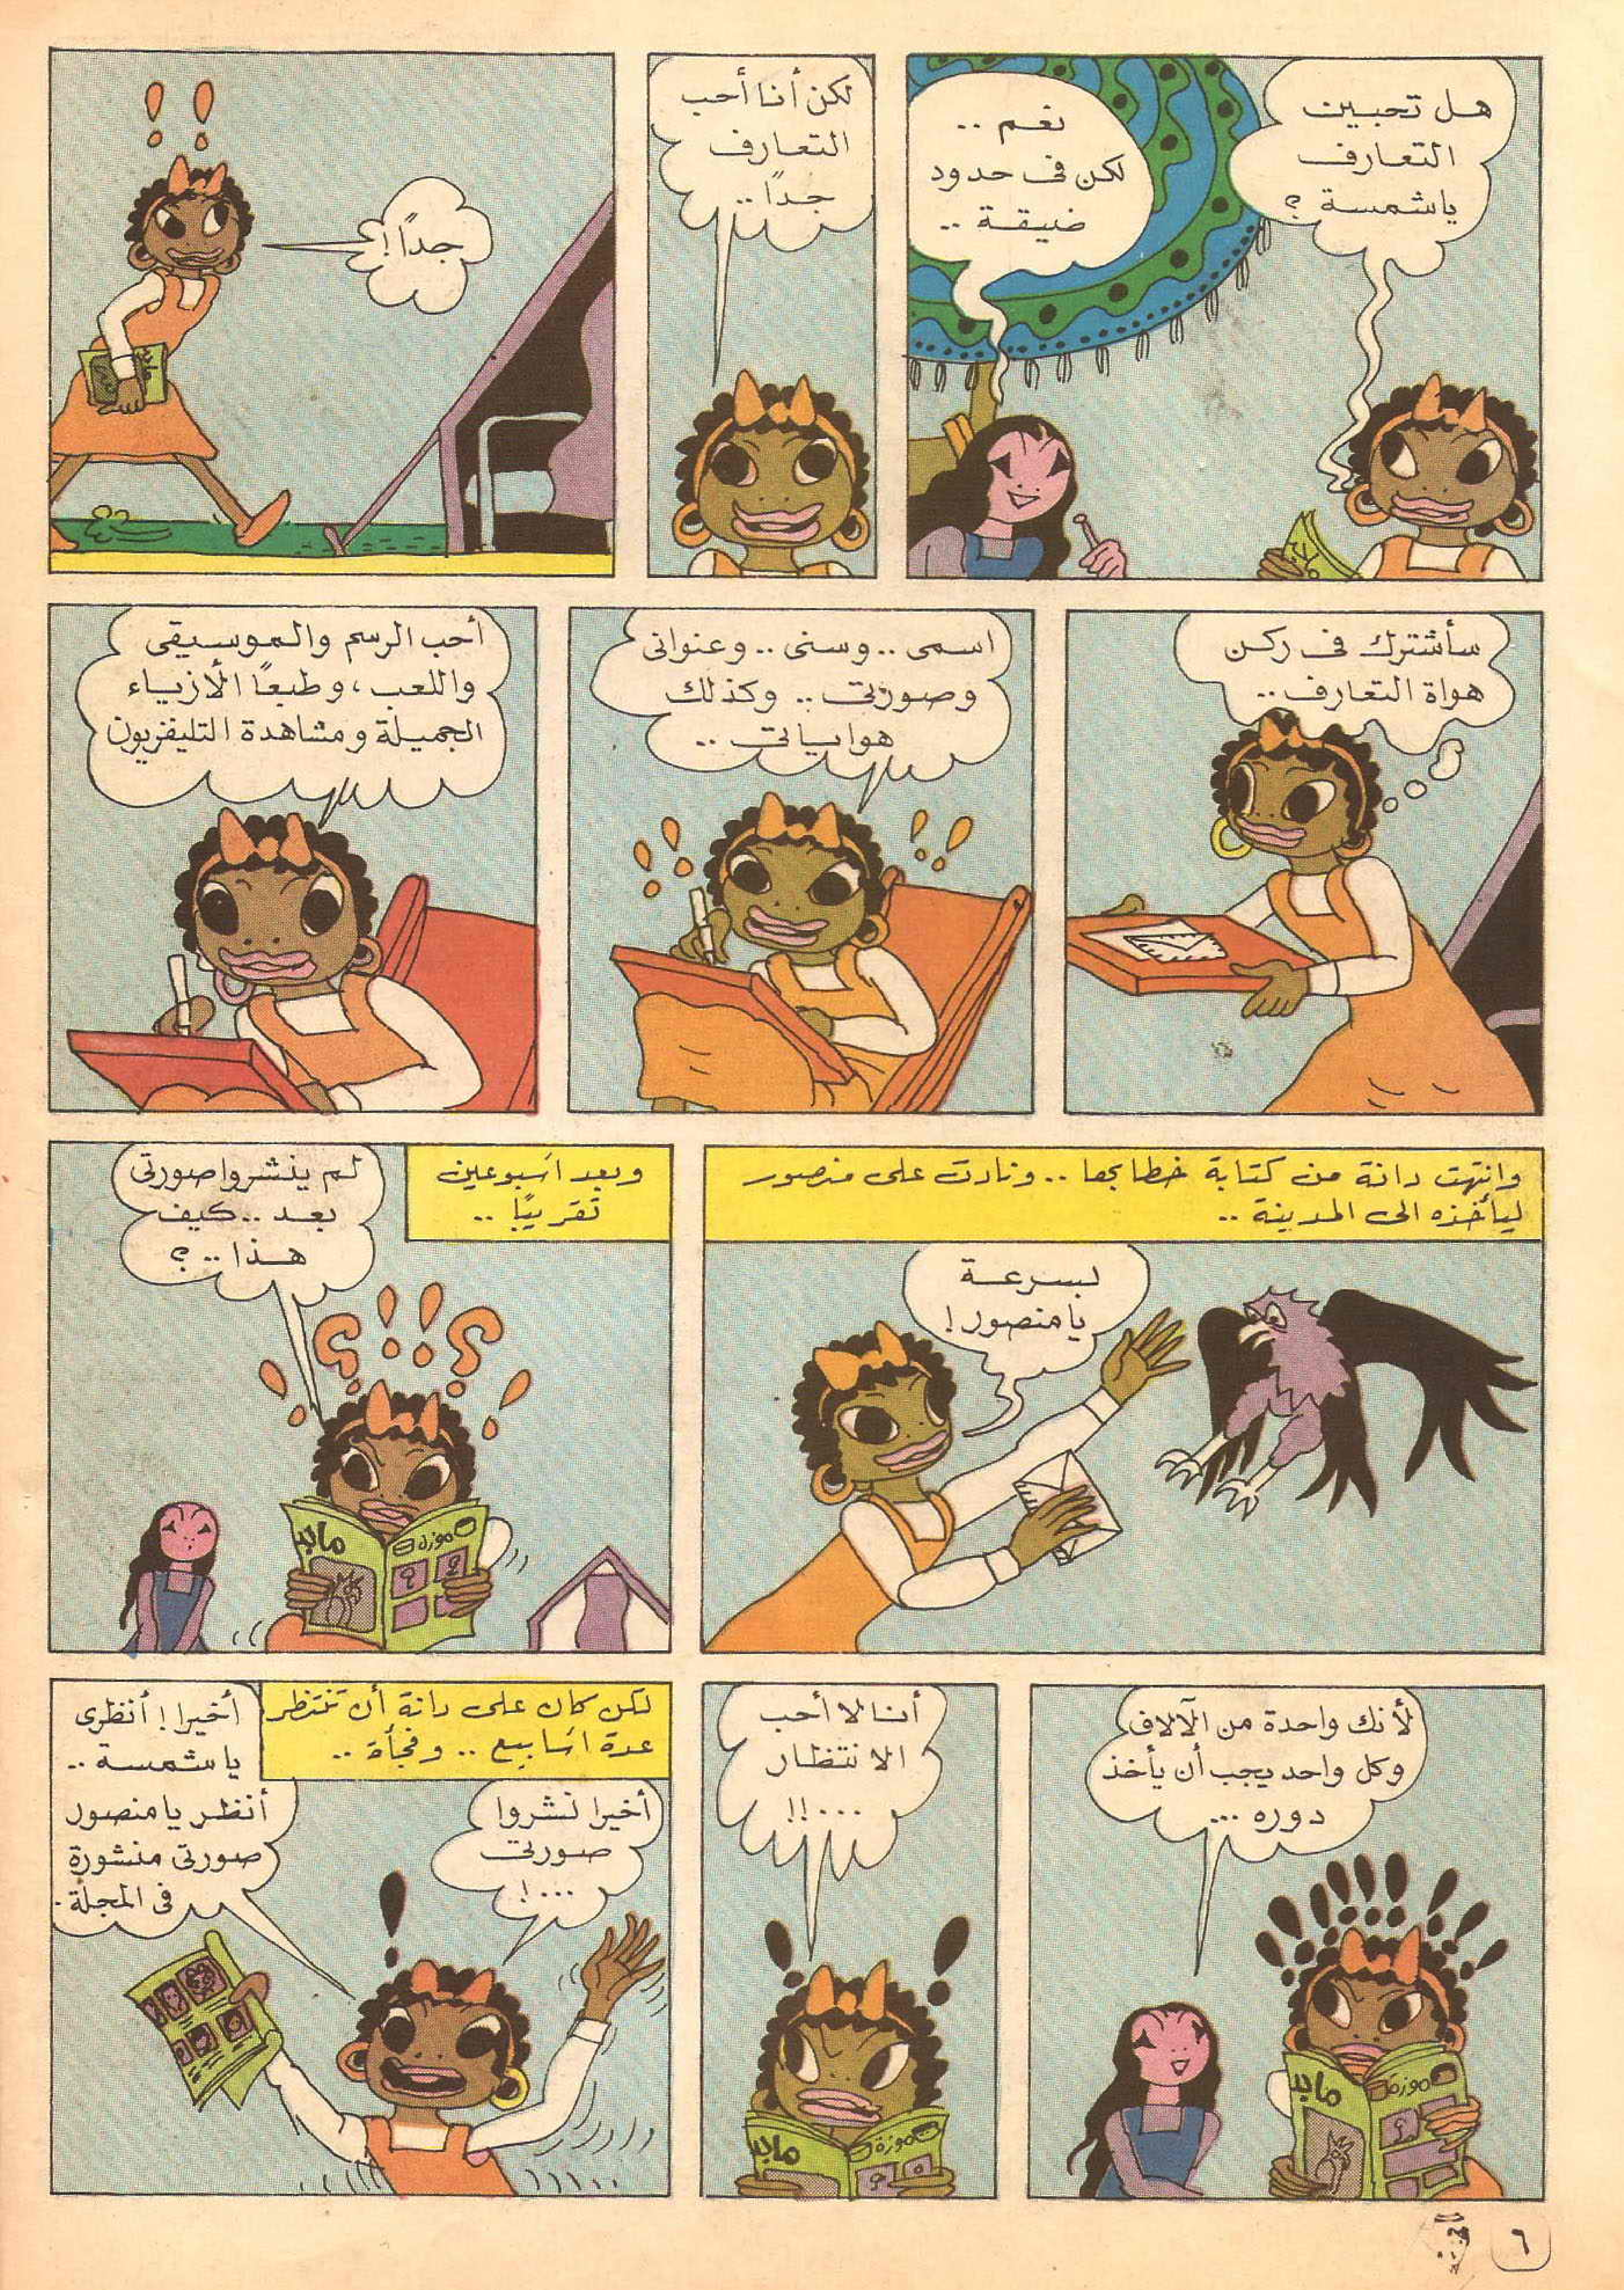 هل تحبين
التعارف
ياشمسة ؟
نعم ..
لكن فى حدود
ضيقة ..
لكن أنا أحب
التعارف
جداً ..
جداً !
سأشترك فى ركن
هواة التعارف ..
اسمى .. وسنى .. وعنوانى
وصورتى .. وكذلك
هواياتى ..
أحب الرسم والموسيقى
واللعب، وطبعاً الأزياء
الجميلة ومشاهدة التليفزيون
وانتهت دانة من كتابة خطابها .. ونادت على منصور
ليأخذه الى المدينة ..
بسرعة
يا منصور !
وبعد اسبوعين
تقريبًا ..
لم ينشروا صورتى
بعد .. كيف
هذا .. ؟
ماجد
لأنك واحدة من الآلاف
وكل واحد يجب أن يأخذ
دوره ...
ماجد
أنا لا أحب
الانتظار
...!!
ماجد
لكن كان على دانة أن تنتظر
عدة اسابيع .. وفجأة ..
أخيرا نشروا
صورتى
...!
أخيرا ! أنظرى
ياشمسة ..
أنظر يا منصور
صورتى منشورة
فى المجلة .
٦